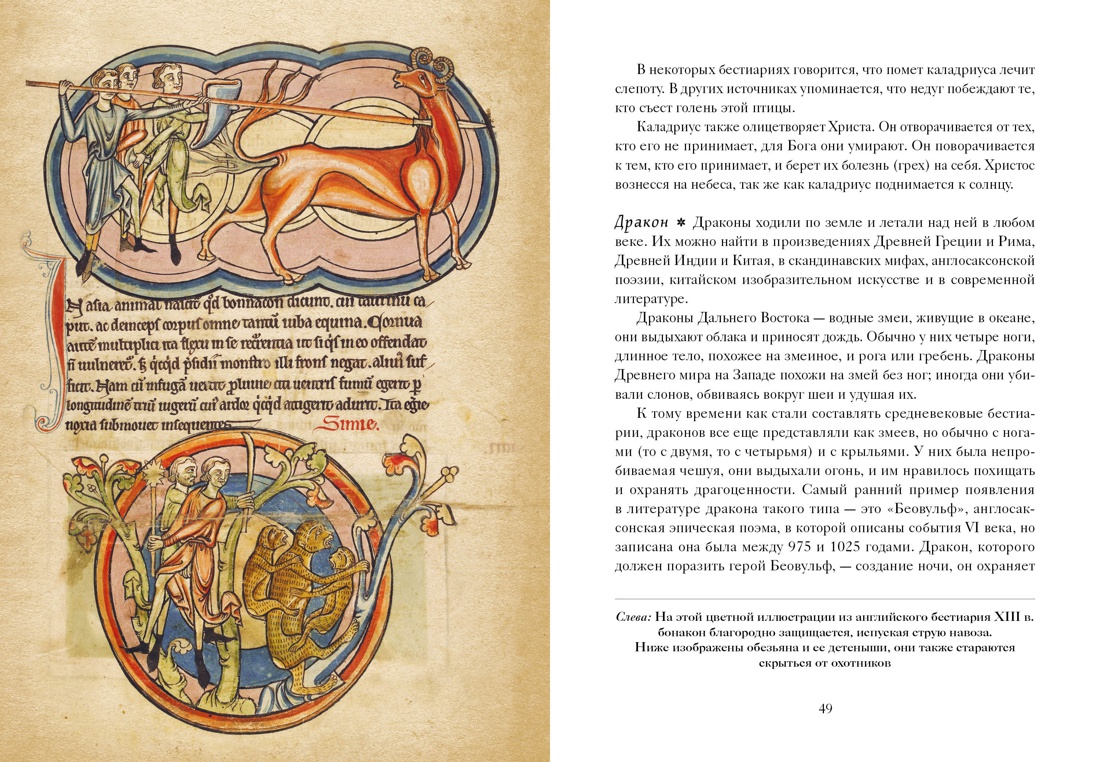 N asia animal nascit qd bonnacon dicunt. cui taurinū ca
put. ac deinceps corpus omne tantū iuba equina. Cornua
autē multiplici ita flexu in se ut si qs in eo offendat
monstro illi frons negat. aluus suf
ficit. Nam cū in fuga uentris fumū egerit p
longitudinē triū iugerū cui ardor attigerit adurit. Ita egie
noxia submouet insequentes. Simie.
В некоторых бестиариях говорится, что помет каладриуса лечит
слепоту. В других источниках упоминается, что недуг побеждают те,
кто съест голень этой птицы.
Каладриус также олицетворяет Христа. Он отворачивается от тех,
кто его не принимает, для Бога они умирают. Он поворачивается
к тем, кто его принимает, и берет их болезнь (грех) на себя. Христос
вознесся на небеса, так же как каладриус поднимается к солнцу.
Дракон ✱ Драконы ходили по земле и летали над ней в любом
веке. Их можно найти в произведениях Древней Греции и Рима,
Древней Индии и Китая, в скандинавских мифах, англосаксонской
поэзии, китайском изобразительном искусстве и в современной
литературе.
Драконы Дальнего Востока — водные змеи, живущие в океане,
они выдыхают облака и приносят дождь. Обычно у них четыре ноги,
длинное тело, похожее на змеиное, и рога или гребень. Драконы
Древнего мира на Западе похожи на змей без ног; иногда они уби-
вали слонов, обвиваясь вокруг шеи и удушая их.
К тому времени как стали составлять средневековые бестиа-
рии, драконов все еще представляли как змеев, но обычно с нога-
ми (то с двумя, то с четырьмя) и с крыльями. У них была непро-
биваемая чешуя, они выдыхали огонь, и им нравилось похищать
и охранять драгоценности. Самый ранний пример появления
в литературе дракона такого типа — это «Беовульф», англосак-
сонская эпическая поэма, в которой описаны события VI века, но
записана она была между 975 и 1025 годами. Дракон, которого
должен поразить герой Беовульф, — создание ночи, он охраняет
Слева: На этой цветной иллюстрации из английского бестиария XIII в.
бонакон благородно защищается, испуская струю навоза.
Ниже изображены обезьяна и ее детеныши, они также стараются
скрыться от охотников
49